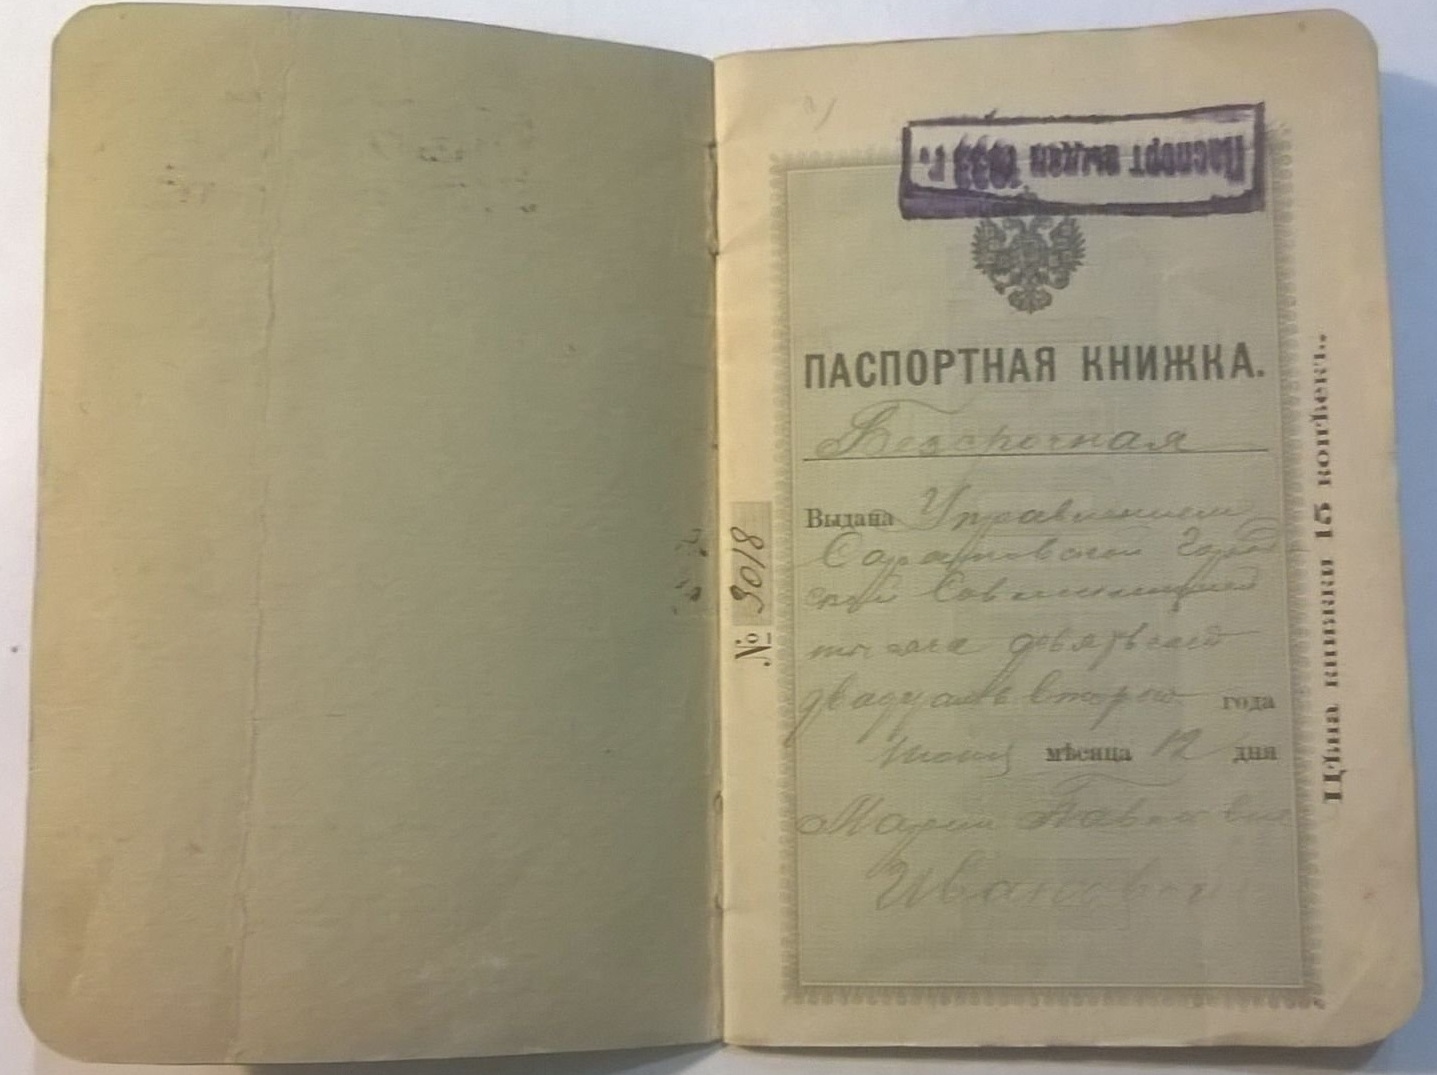 Паспорт выдан 1933 г.
ПАСПОРТНАЯ КНИЖКА.
Безсрочная
Выдана Управлением
Саратовской Город
ской Сов
тысяча девятьсот
двадцать второго года
Июня мѣсяца 12 дня
Марии Павловне
Ивановой
№ 3018
Цѣна книжки 15 копѣекъ.